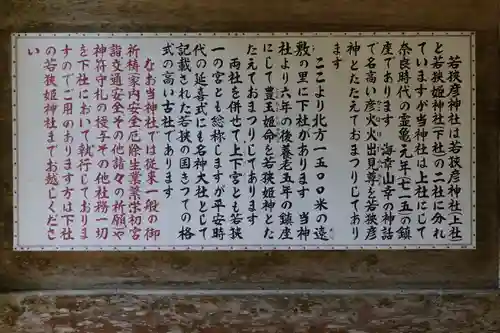 若狭彦神社は若狭彦神社(上社)
と若狭姫神社(下社)の二社に分れ
ていますが当神社は上社にして
奈良時代の霊亀元年(七一五)の鎮
座であります 海幸山幸の神話
で名高い彦火火出見尊を若狭彦
神とたたえておまつりしてあり
ます
ここより北方一五〇〇米の遠
敷の里に下社があります 当神
社より六年の後養老五年の鎮座
にして豊玉姫命を若狭姫神とた
たえておまつりしてあります
両社を併せて上下宮とも若狭
一の宮とも総称しますが平安時
代の延喜式にも名神大社として
記載された若狭の国きっての格
式の高い古社であります
なお当神社では従来一般の御
祈祷(家内安全厄除生業繁栄初宮
詣交通安全その他諸々の祈願)や
神符守札の授与その他社務一切
を下社において執行しておりま
すのでご用のおありの方は下社
の若狭姫神社までお越しくださ
い